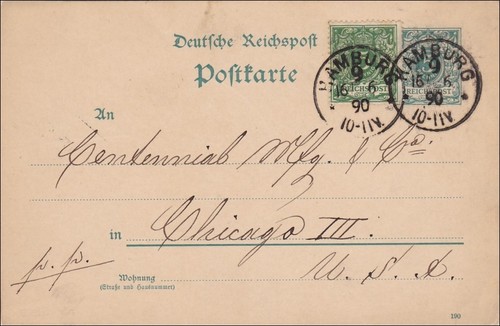 Deutsche Reichspost
Postkarte
REICHSPOST REICHSPOST
HAMBURG HAMBURG
9 9
16 6 16 6
90 90
10-11V. 10-11V.
An
Centennial Mfg. & Co.
in Chicago Ill.
p. p.
Wohnung
(Straße und Hausnummer)
U. S. A.
190